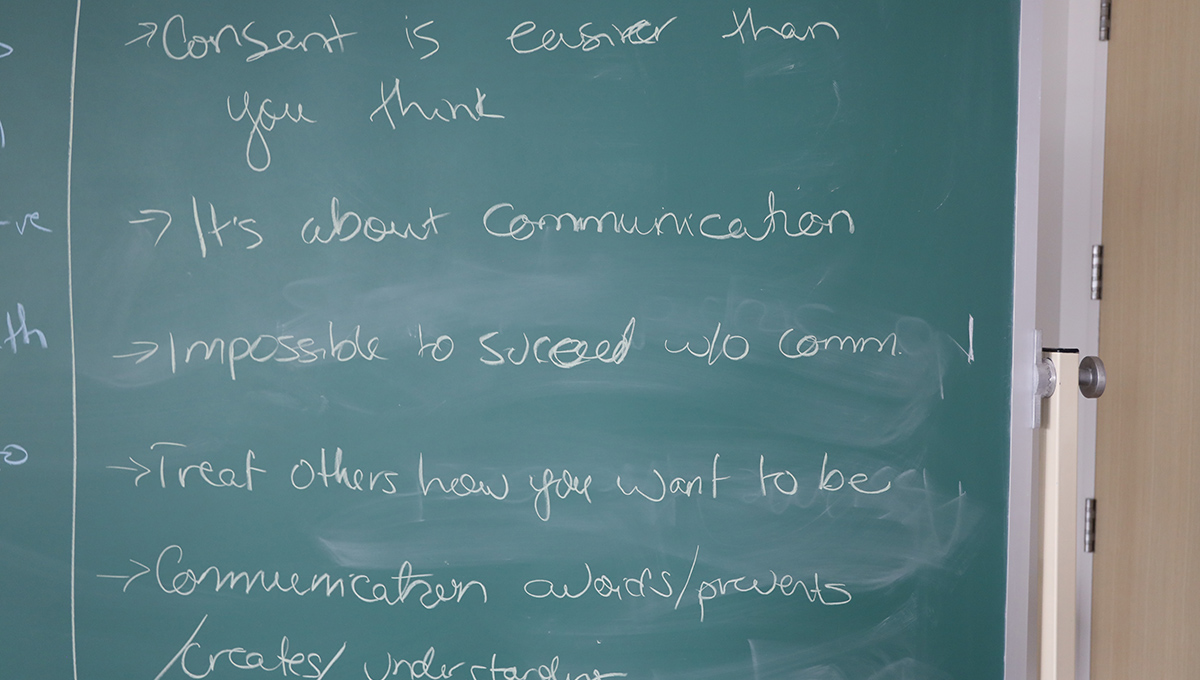 →Consent is easier than
you think
→ It's about communication
→Impossible to succeed w/o comm.
→Treat others how you want to be
→Communication avoids/prevents
/creates/ understanding
ve
th